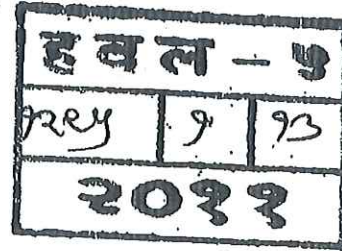 हवल - ५
१२९५ १ १३
२०११